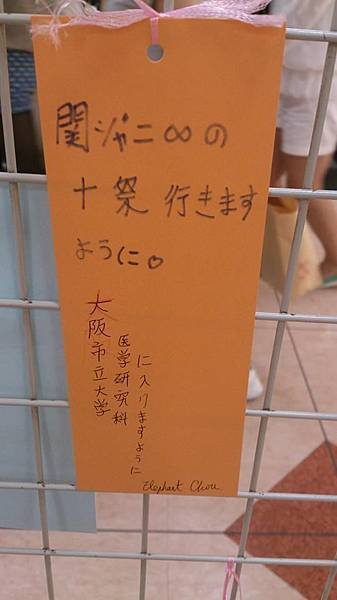 関ジャニ∞の
十祭 行きます
ように。
大阪市立大学
医学研究科
に入りますように
Elephant Chou